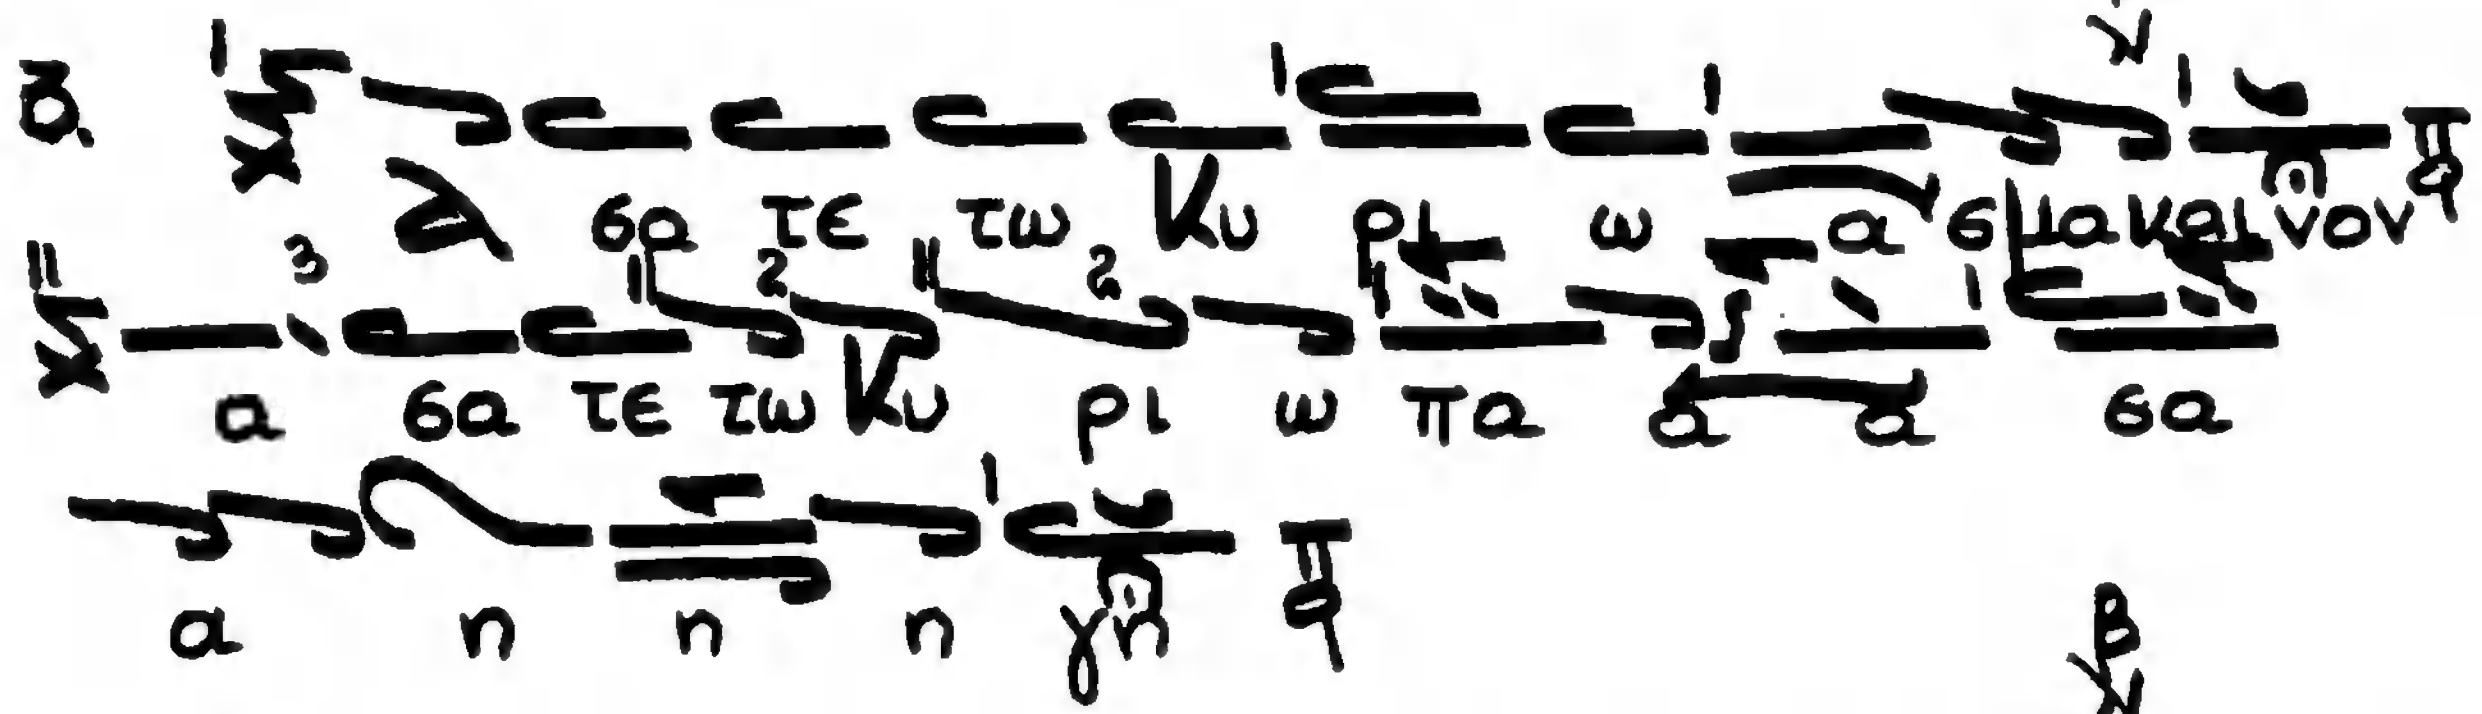 α σα τε τω Κυ ρι ω α σμα και νον
α σα τε τω Κυ ρι ω πα α α σα
α η η η γη